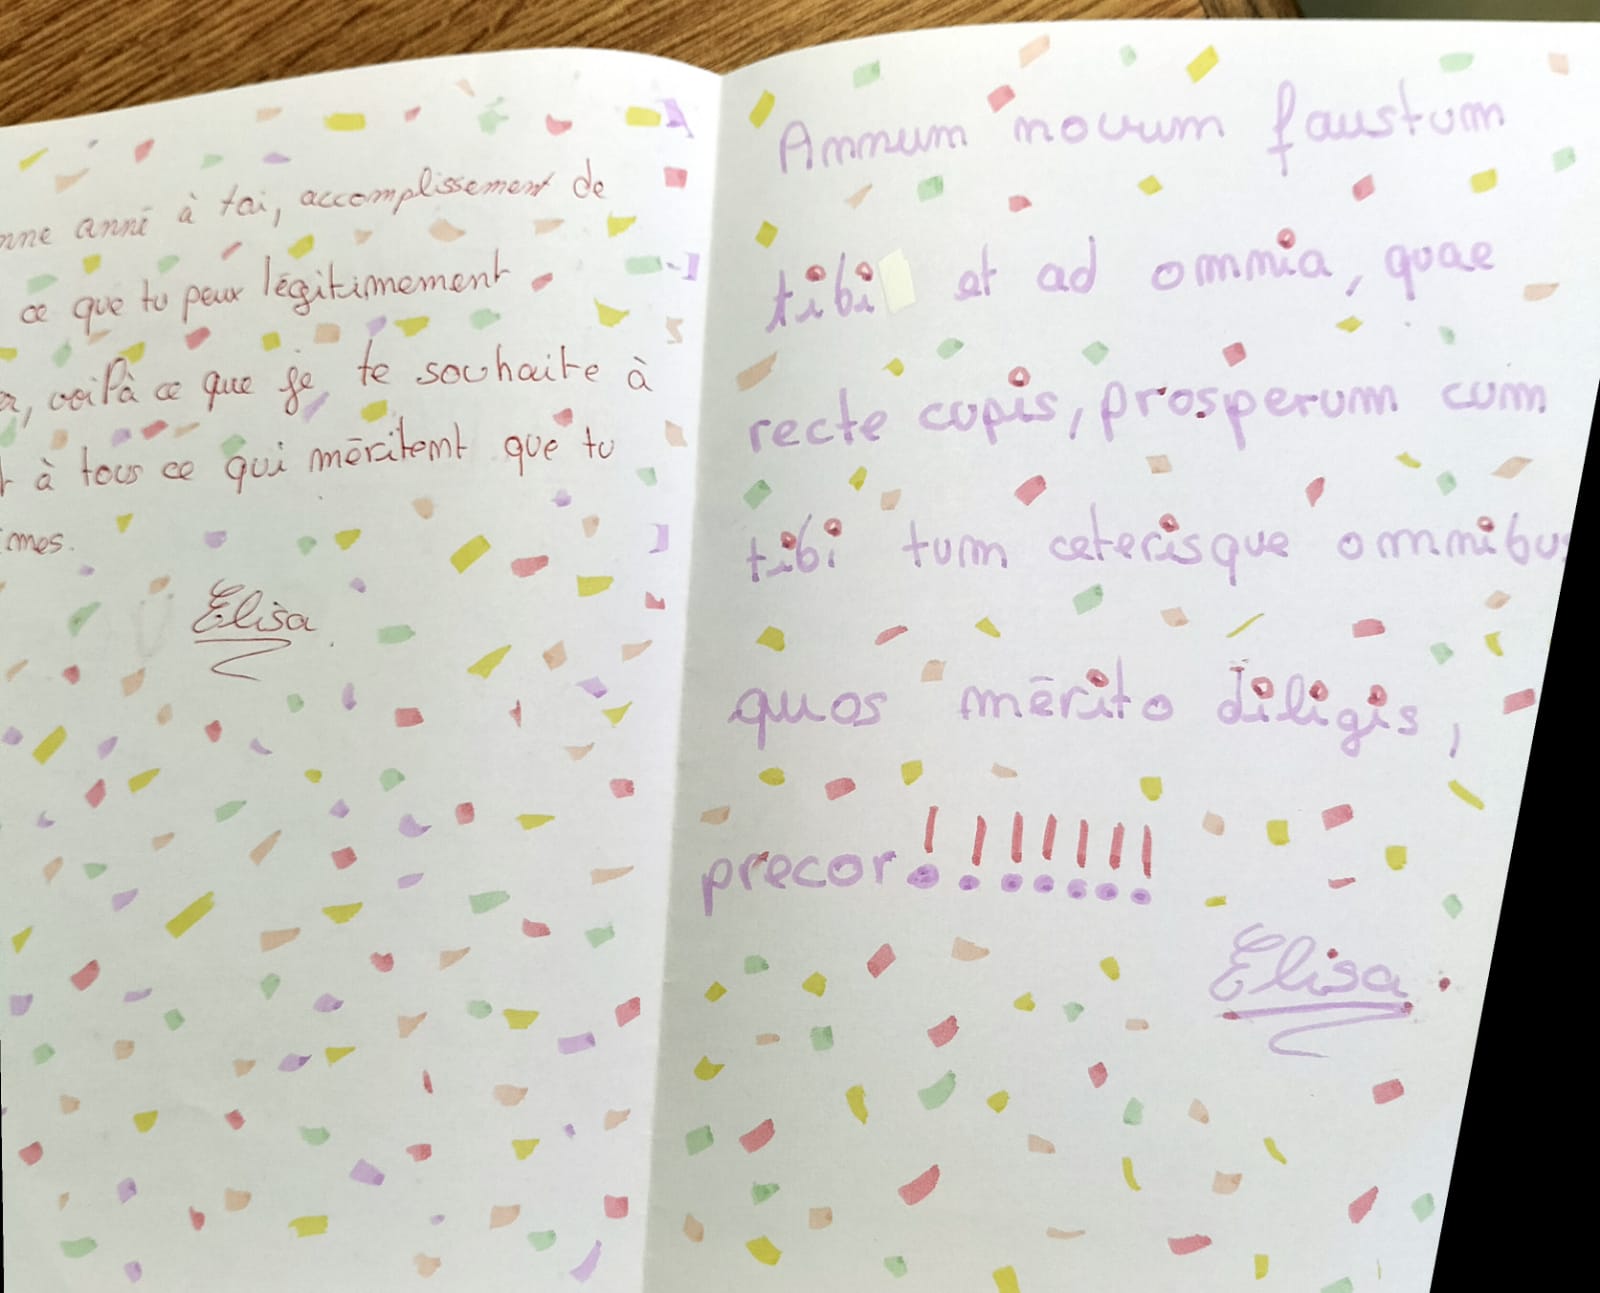 nne anné à toi, accomplissement de
ce que tu peux légitimement
voilà ce que je te souhaite à
à tous ce qui méritemt que tu
imes.
Elisa
Annum novum faustum
tibi et ad omnia, quae
recte cupis, prosperum cum
tibi tum ceterisque omnibus
quos mērito diligis,
precor!!!!!!!
Elisa